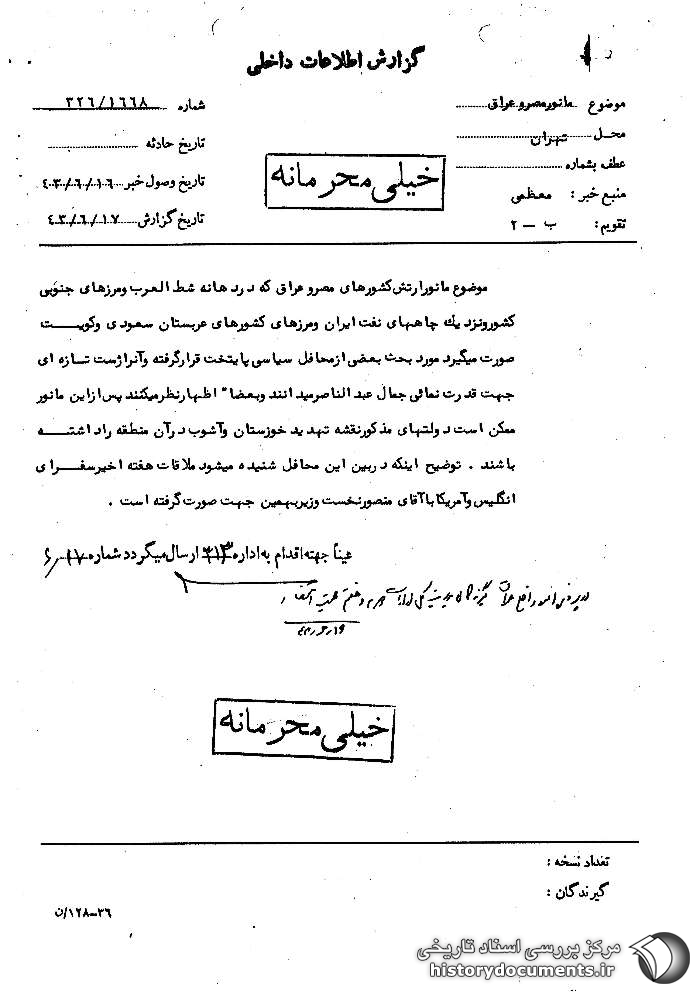 گزارش اطلاعات داخلی
موضوع مانور مصر و عراق
محل تهران
عطف بشماره
منبع خبر: معظمی
تقویم: ب - ۲
شماره ۳۲۶/۱۶۶۸
تاریخ حادثه
تاریخ وصول خبر ۴۳/۶/۱۶
تاریخ گزارش ۴۳/۶/۱۷
خیلی محرمانه
موضوع مانور ارتش کشورهای مصر و عراق که در دهانه شط العرب و مرزهای جنوبی
کشور و نزدیک چاههای نفت ایران و مرزهای کشورهای عربستان سعودی و کویت
صورت میگیرد مورد بحث بعضی از محافل سیاسی پایتخت قرار گرفته و آنرا ژست تازه ای
جهت قدرت نمائی جمال عبد الناصر میدانند و بعضا" اظهار نظر میکنند پس از این مانور
ممکن است دولتهای مذکور نقشه تهدید خوزستان و آشوب در آن منطقه را داشته
باشند . توضیح اینکه در بین این محافل شنیده میشود ملاقات هفته اخیر سفرای
انگلیس و آمریکا با آقای منصور نخست وزیر بهمین جهت صورت گرفته است .
عیناً جهته اقدام به اداره ارسال میگردد شماره
خیلی محرمانه
تعداد نسخه :
گیرندگان :
۳۶-۱۲۸/ن
مرکز بررسی اسناد تاریخی
historydocuments.ir